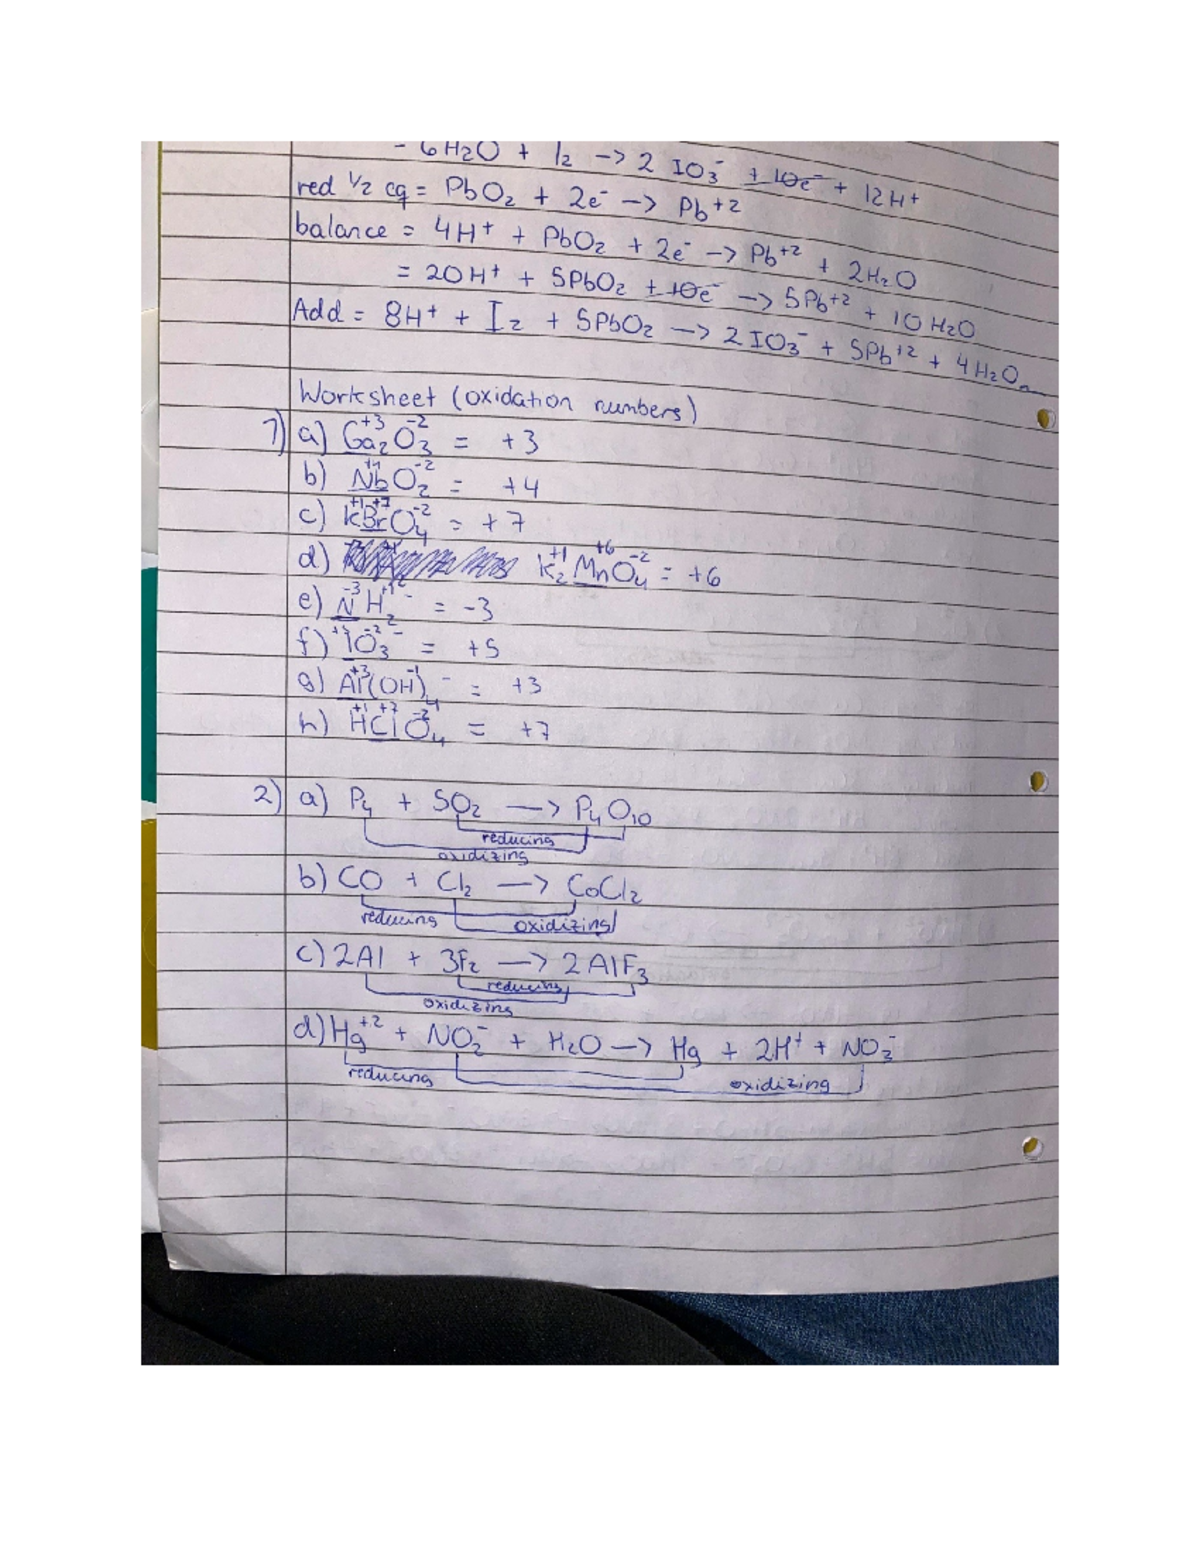 = 6H₂O + I₂ -> 2 IO₃⁻ + 10e⁻ + 12H⁺
red 1/2 eq = PbO₂ + 2e⁻ -> Pb⁺²
balance = 4H⁺ + PbO₂ + 2e⁻ -> Pb⁺² + 2H₂O
= 20H⁺ + 5PbO₂ + 10e⁻ -> 5Pb⁺² + 10H₂O
Add = 8H⁺ + I₂ + 5PbO₂ -> 2IO₃⁻ + 5Pb⁺² + 4H₂O
Worksheet (oxidation numbers)
1) a) Ga₂O₃ = +3
+3 -2
b) NbO₂ = +4
+4 -2
c) KBrO₄ = +7
+1 +7 -2
d) K₂MnO₄ = +6
+1 +6 -2
e) NH₂⁻ = -3
-3
f) IO₃⁻ = +5
-2
g) Al(OH)₄⁻ = +3
+3 -1
h) HClO₄ = +7
+1 +7 -2
2) a) P₄ + SO₂ -> P₄O₁₀
reducing
oxidizing
b) CO + Cl₂ -> CoCl₂
reducing oxidizing
c) 2Al + 3F₂ -> 2AlF₃
reducing
oxidizing
d) Hg⁺² + NO₂⁻ + H₂O -> Hg + 2H⁺ + NO₃⁻
reducing oxidizing